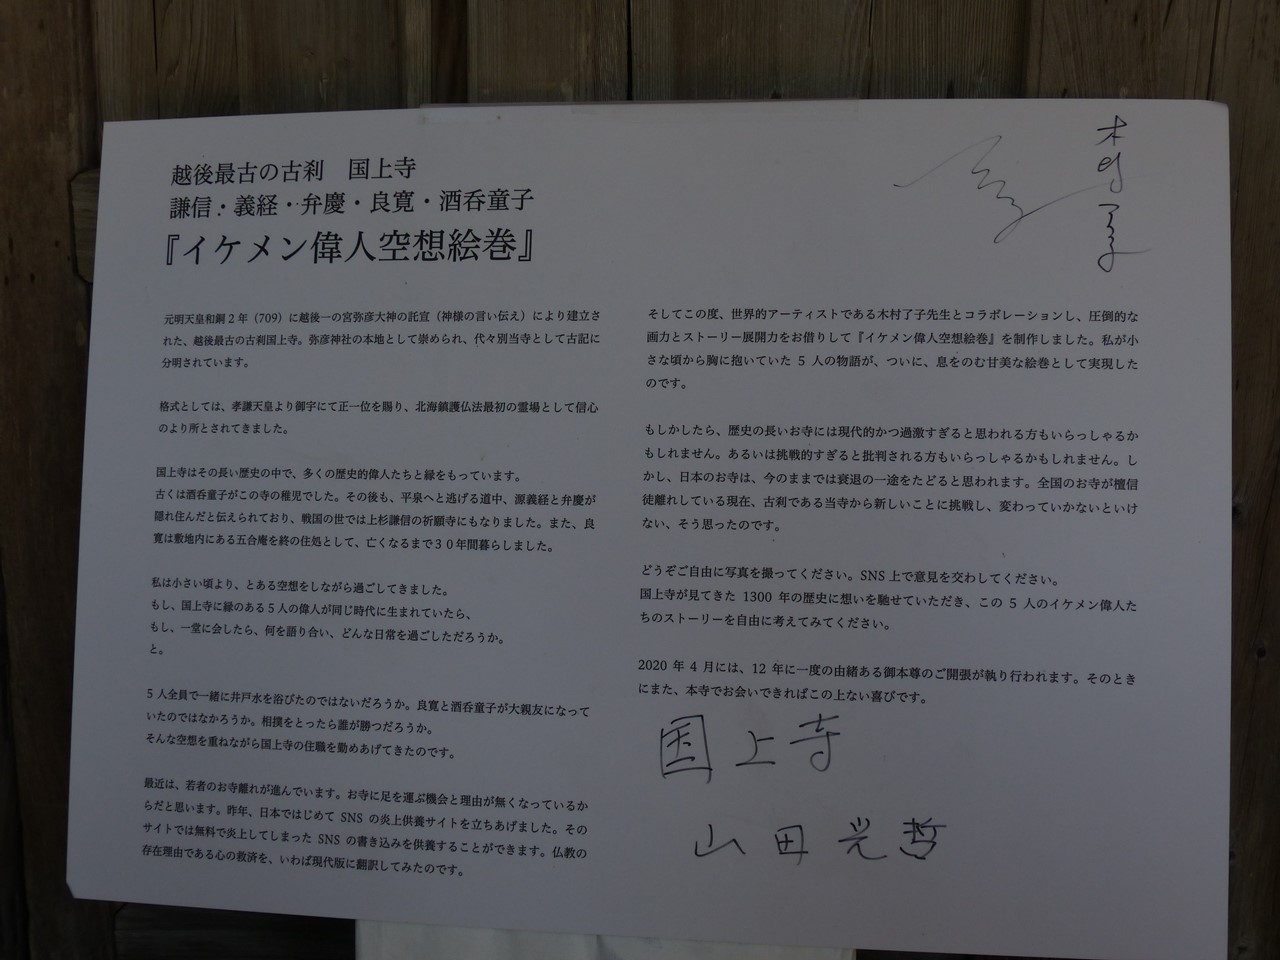 越後最古の古刹　国上寺
謙信・義経・弁慶・良寛・酒呑童子
『イケメン偉人空想絵巻』
元明天皇和銅２年（709）に越後一の宮弥彦大神の託宣（神様の言い伝え）により建立さ
れた、越後最古の古刹国上寺。弥彦神社の本地として崇められ、代々別当寺として古記に
分明されています。
格式としては、孝謙天皇より御宇にて正一位を賜り、北海鎮護仏法最初の霊場として信心
のより所とされてきました。
国上寺はその長い歴史の中で、多くの歴史的偉人たちと縁をもっています。
古くは酒呑童子がこの寺の稚児でした。その後も、平泉へと逃げる道中、源義経と弁慶が
隠れ住んだと伝えられており、戦国の世では上杉謙信の祈願寺にもなりました。また、良
寛は敷地内にある五合庵を終の住処として、亡くなるまで３０年間暮らしました。
私は小さい頃より、とある空想をしながら過ごしてきました。
もし、国上寺に縁のある５人の偉人が同じ時代に生まれていたら、
もし、一堂に会したら、何を語り合い、どんな日常を過ごしただろうか。
と。
５人全員で一緒に井戸水を浴びたのではないだろうか。良寛と酒呑童子が大親友になって
いたのではなかろうか。相撲をとったら誰が勝つだろうか。
そんな空想を重ねながら国上寺の住職を勤めあげてきたのです。
最近は、若者のお寺離れが進んでいます。お寺に足を運ぶ機会と理由が無くなっているか
らだと思います。昨年、日本ではじめて SNS の炎上供養サイトを立ちあげました。その
サイトでは無料で炎上してしまった SNS の書き込みを供養することができます。仏教の
存在理由である心の救済を、いわば現代版に翻訳してみたのです。
木村了子
そしてこの度、世界的アーティストである木村了子先生とコラボレーションし、圧倒的な
画力とストーリー展開力をお借りして『イケメン偉人空想絵巻』を制作しました。私が小
さな頃から胸に抱いていた 5 人の物語が、ついに、息をのむ甘美な絵巻として実現した
のです。
もしかしたら、歴史の長いお寺には現代的かつ過激すぎると思われる方もいらっしゃるか
もしれません。あるいは挑戦的すぎると批判される方もいらっしゃるかもしれません。し
かし、日本のお寺は、今のままでは衰退の一途をたどると思われます。全国のお寺が檀信
徒離れしている現在、古刹である当寺から新しいことに挑戦し、変わっていかないといけ
ない、そう思ったのです。
どうぞご自由に写真を撮ってください。SNS 上で意見を交わしてください。
国上寺が見てきた 1300 年の歴史に想いを馳せていただき、この 5 人のイケメン偉人た
ちのストーリーを自由に考えてみてください。
2020 年 4 月には、12 年に一度の由緒ある御本尊のご開張が執り行われます。そのとき
にまた、本寺でお会いできればこの上ない喜びです。
国上寺
山田光哲